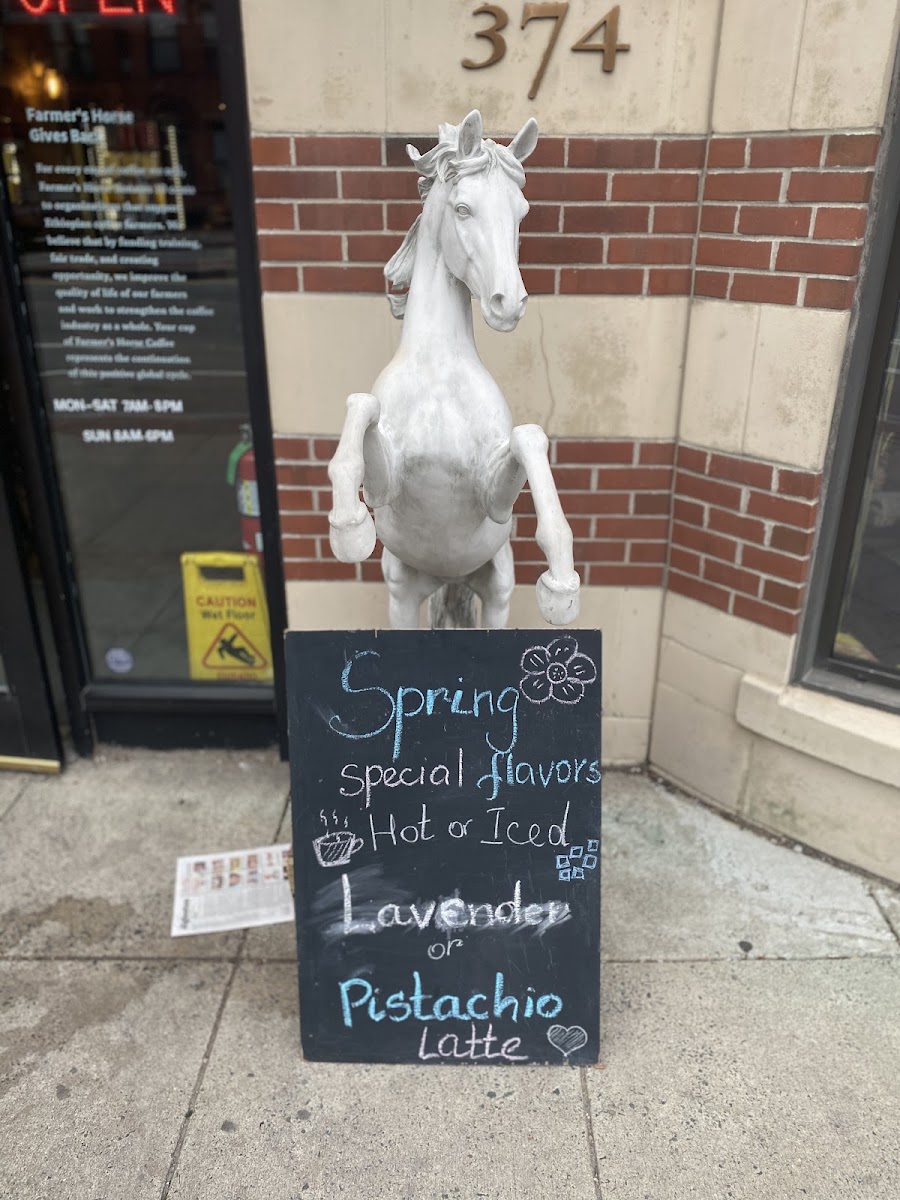 OPEN
374
Farmer's Horse
Gives Back
For every
Farmer's Horse
to organizations that support
Ethiopian coffee farmers. We
believe that by funding training,
fair trade, and creating
opportunity, we improve the
quality of life of our farmers
and work to strengthen the coffee
industry as a whole. Your cup
of Farmer's Horse Coffee
represents the continuation
of this positive global cycle.
MON-SAT 7AM-8PM
SUN 8AM-6PM
CAUTION
Wet Floor
Spring
special flavors
Hot or Iced
Lavender
or
Pistachio
Latte